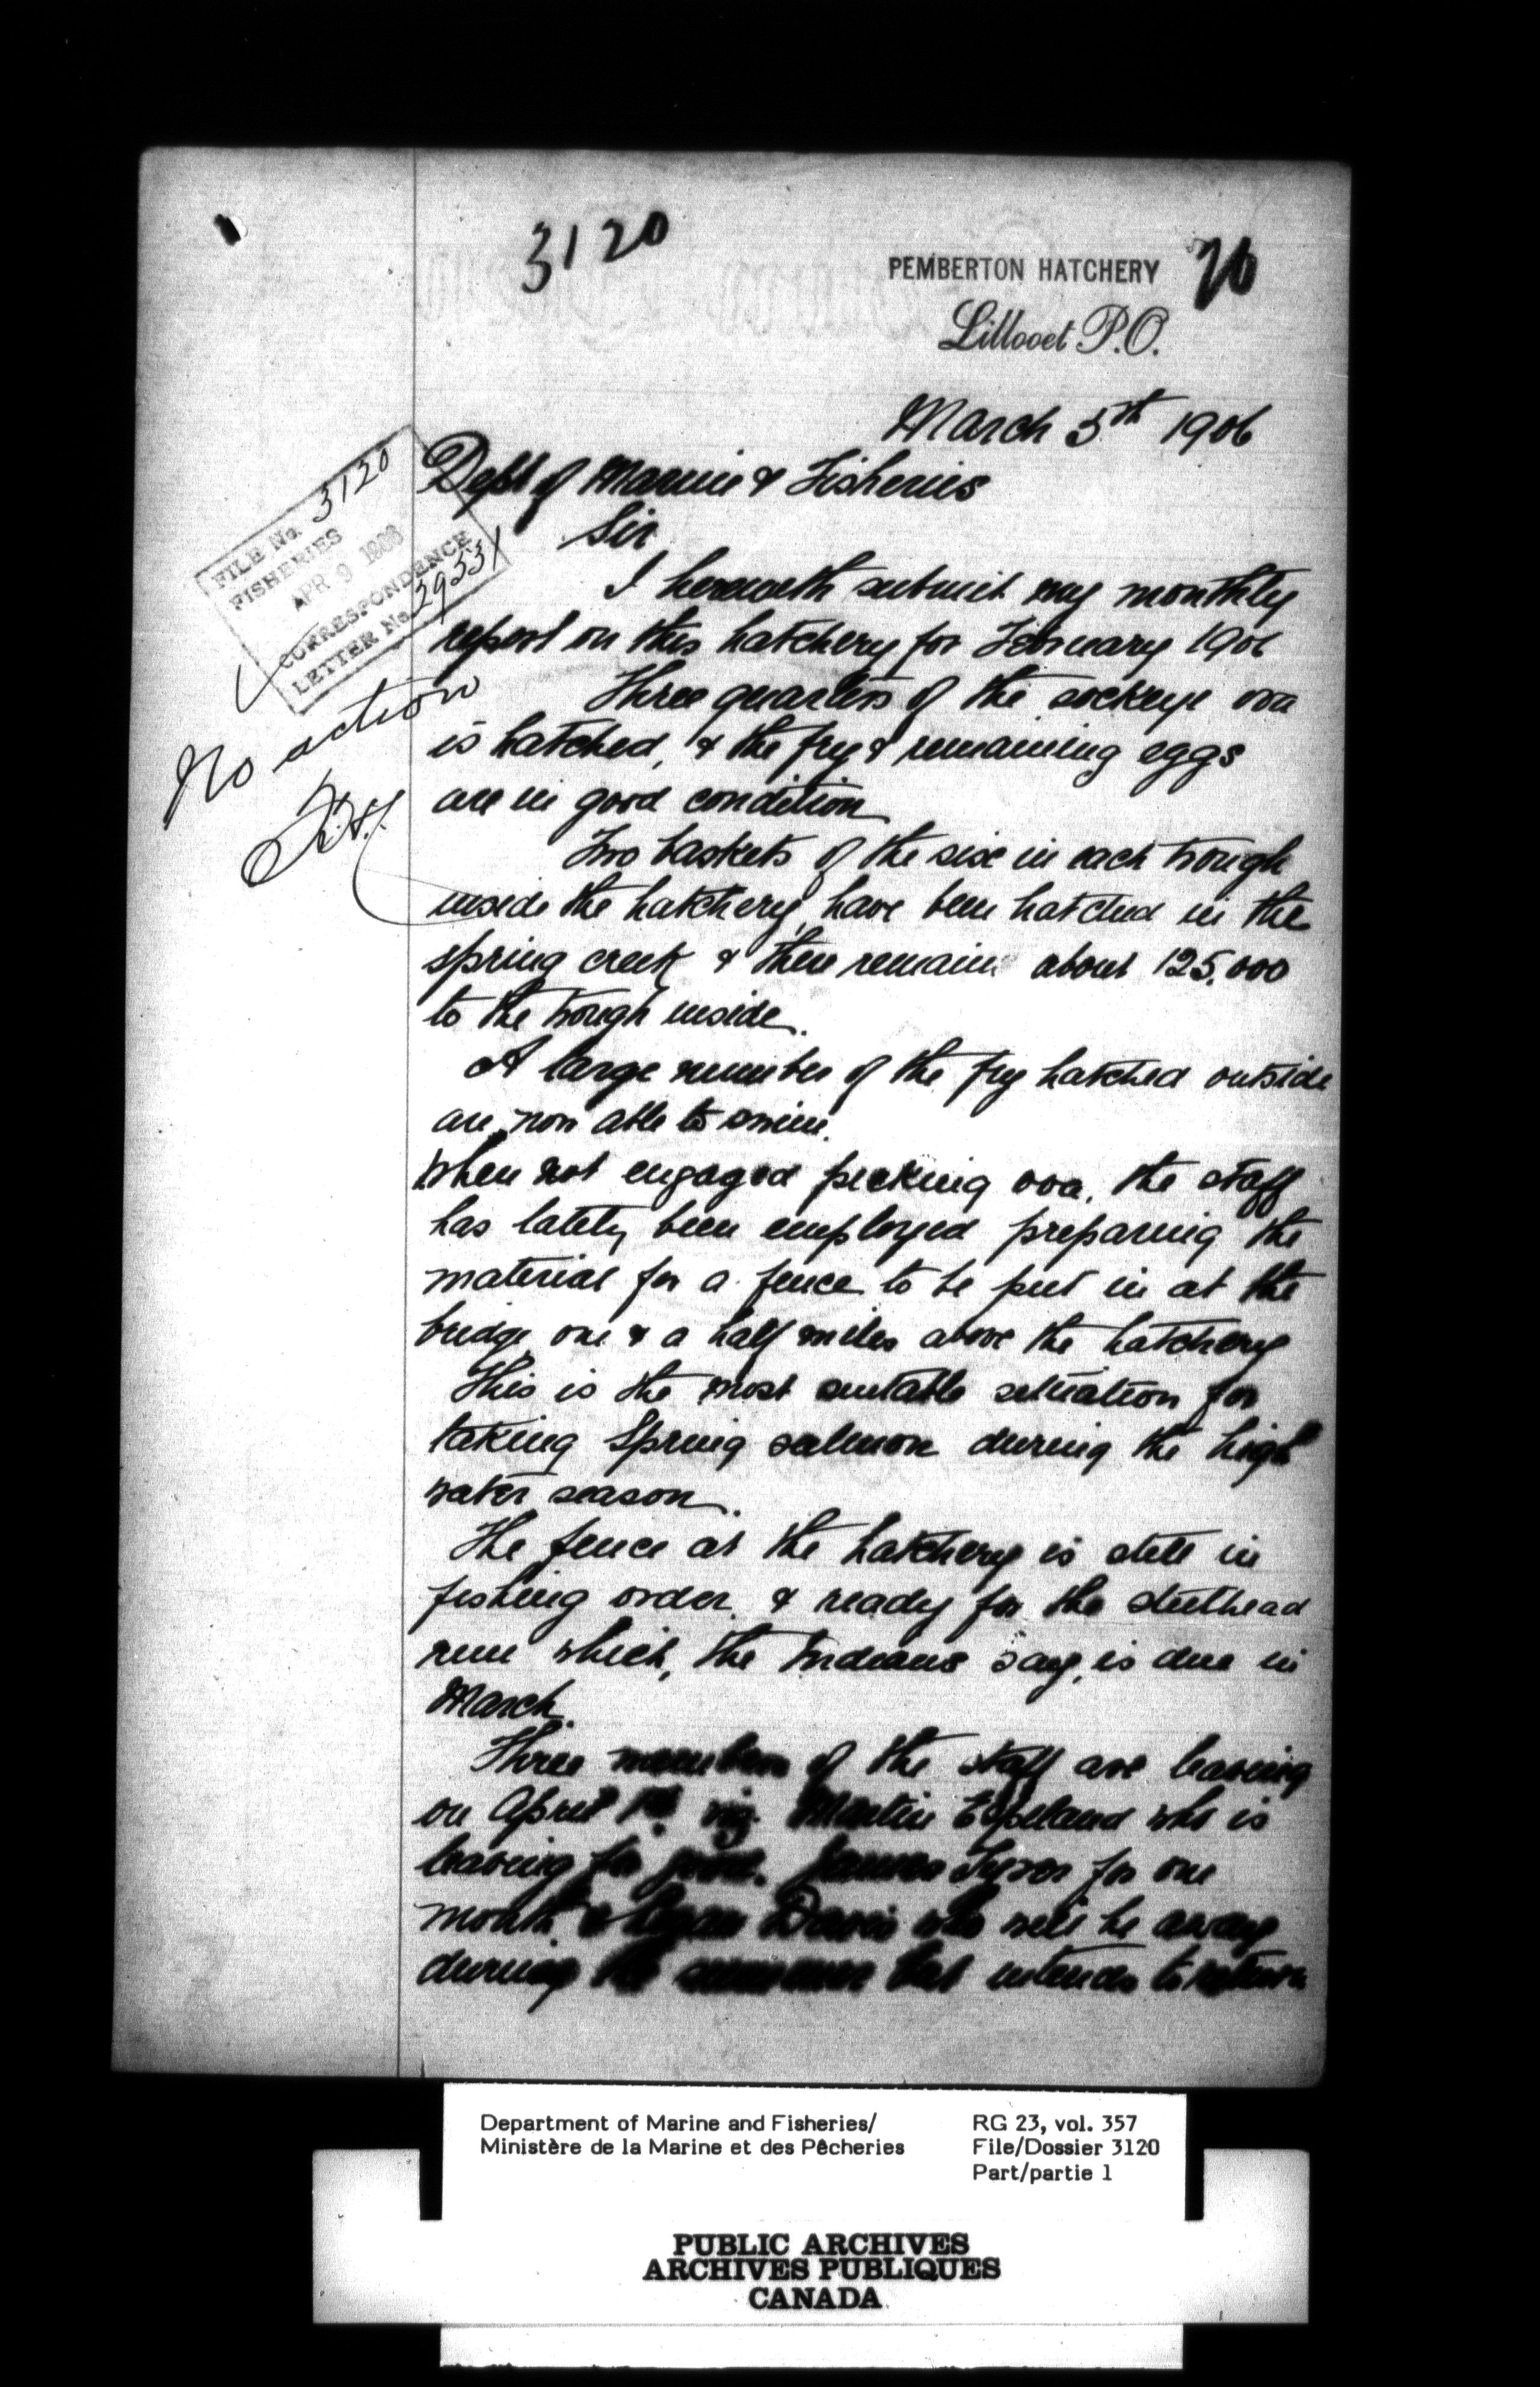 3120
PEMBERTON HATCHERY 76
Lillooet P.O.
March 5th 1906
Dept of Marine & Fisheries
Sir
I herewith submit my monthly
report on this hatchery for February 1906
Three quarters of the sockeye ova
is hatched, & the fry & remaining eggs
are in good condition
Two baskets of the six in each trough
inside the hatchery, have been hatched in the
spring creek & there remain about 125,000
to the trough inside.
A large number of the fry hatched outside
are now able to swim.
When not engaged picking ova, the staff
has lately been employed preparing the
material for a fence to be put in at the
bridge one & a half miles above the hatchery
This is the most suitable situation for
taking Spring salmon during the high
water season.
The fence at the hatchery is still in
fishing order, & ready for the steelhead
run which, the Indians say, is due in
March.
Three members of the staff are leaving
on April 1st viz. Martin Copeland who is
leaving for good. James for one
month & Davis who will be away
during the summer but intends to return
FILE No. 3120
FISHERIES
APR 9 1906
CORRESPONDENCE
LETTER No. 29531
No action
Department of Marine and Fisheries/
Ministère de la Marine et des Pêcheries
RG 23, vol. 357
File/Dossier 3120
Part/partie 1
PUBLIC ARCHIVES
ARCHIVES PUBLIQUES
CANADA